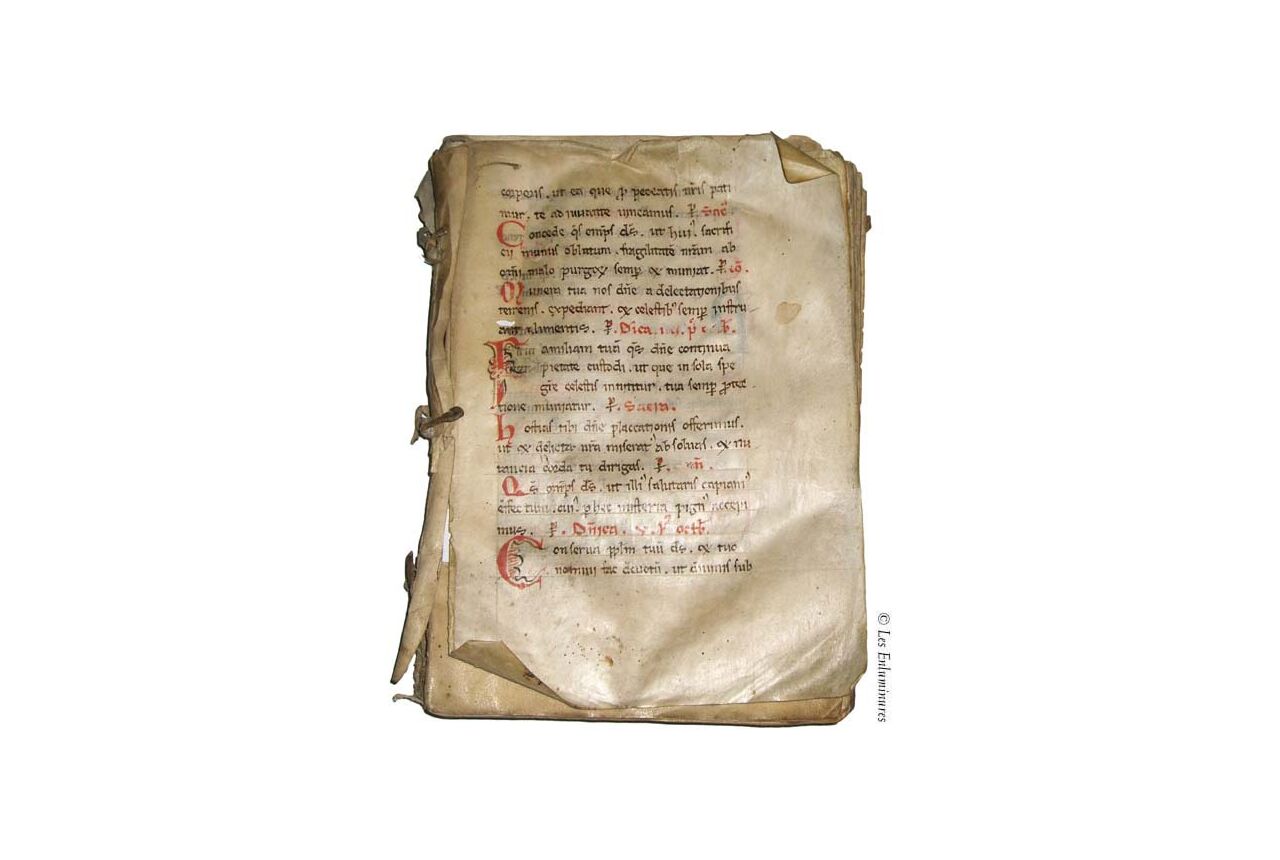 corporis . ut ea que ꝑ peccatis nr̄is pati
mur . te adiuvante vincamus . ꝶ. Sac̄.
Concede q̄s om̄ps ds̄ . ut huiꝰ sacrifi
cii munus oblatum . fragilitatē nr̄am ab
om̄i malo purget semꝑ et muniat . ꝶ. cō.
Munera tua nos dn̄e a delectationibus
terrenis . expediant . et celestibꝰ semꝑ instru
ant alimentis . ꝶ. Dn̄ica
Familiam tuā q̄s dn̄e continua
pietate custodi . ut que in sola spe
gr̄e celestis innititur . tua semꝑ ꝓtec
tione muniatur . ꝶ. Sacra .
hostias tibi dn̄e placcationis offerimus .
ut et delicta nr̄a miseratꝰ absolvas . et nu
tancia corda tu dirigas . ꝶ.
Qs̄ om̄ps ds̄ . ut illiꝰ salutaris capiamꝰ
effectum . cuiꝰ ꝑ hec misteria pignꝰ accepi
mus . ꝶ. Dn̄ica . v . pꝰ octb̄.
Conserva ppl̄m tuū ds̄ . et tuo
nomini fac devotū . ut divinis sub
© Les Enluminures